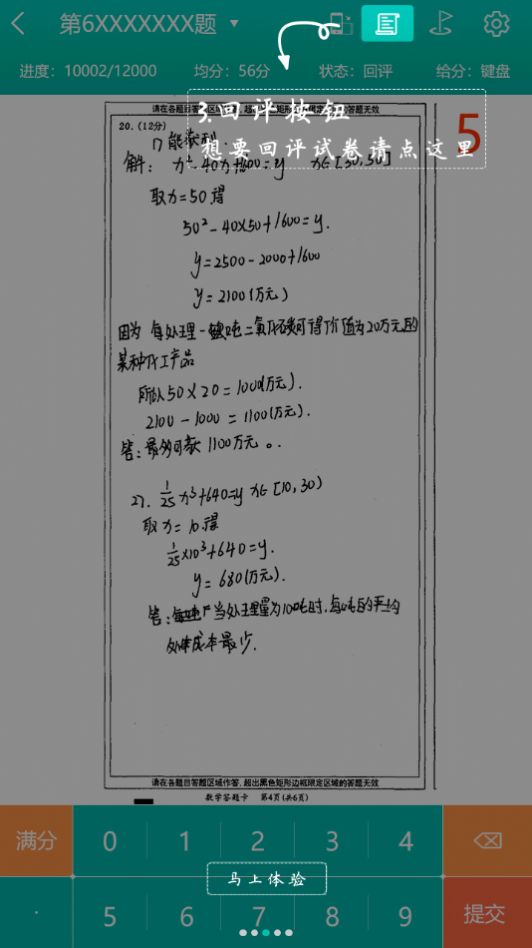 第6XXXXXXX题
进度：10002/12000 均分：56分 状态：回评 给分：键盘
3.回评按钮
想要回评试卷请点这里
5
20. (12分)
1) 能获利.
解: x²-40x+1600=y x∈[30,50]
取x=50得
50²-40×50+1600=y.
y=2500-2000+1600
y=2100(万元)
因为 每处理一吨二氧化碳可得价值为20万元的
某种化工产品
所以50×20=1000(万元).
2100-1000=1100(万元).
答:最多可款 1100万元。
27. 1/25 x³+640=y x∈[10,30)
取x=10得
1/25×10³+640=y.
y=680(万元).
答: 当处理量为10吨时,每吨的平均
处理成本最少.
请在各题目答题区域作答,超出黑色矩形边框限定区域的答题无效
数学答题卡 第4页(共6页)
满分 0 1 2 3 4
马上体验
· 5 6 7 8 9 提交